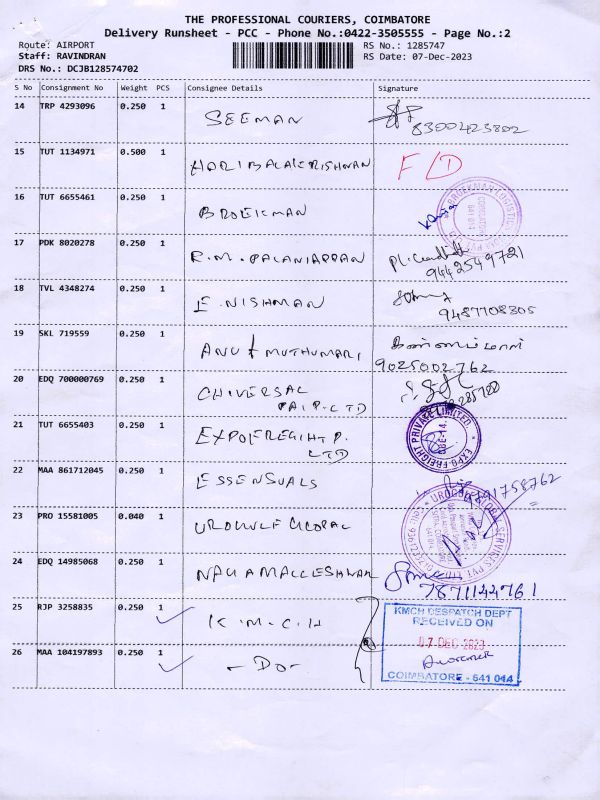 THE PROFESSIONAL COURIERS, COIMBATORE
Delivery Runsheet - PCC - Phone No.:0422-3505555 - Page No.:2
Route: AIRPORT RS No.: 1285747
Staff: RAVINDRAN RS Date: 07-Dec-2023
DRS No.: DCJB128574702
S No Consignment No Weight PCS Consignee Details Signature
14 TRP 4293096 0.250 1 SEEMAN 8300423802
15 TUT 1134971 0.500 1 HARIBALAKRISHNAN F/D
16 TUT 6655461 0.250 1 BROEKMAN
17 PDK 8020278 0.250 1 R.M. PALANIAPPAN 9442549721
18 TVL 4348274 0.250 1 E. NISHMAN 9487708305
19 SKL 719559 0.250 1 ANU & MUTHUMARI 9025002762
20 EDQ 700000769 0.250 1
P. LTD
21 TUT 6655403 0.250 1 EXPOFREGIHT P. LTD
EXPO FREIGHT PRIVATE LIMITED
22 MAA 861712045 0.250 1 ESSENSUALS
23 PRO 15581005 0.040 1
24 EDQ 14985068 0.250 1 NAGAMALLESHWAR 7871144761
25 RJP 3258835 0.250 1 K.M.C.H
26 MAA 104197893 0.250 1 - DO -
KMCH DESPATCH DEPT
RECEIVED ON
07 DEC 2023
COIMBATORE - 641 014